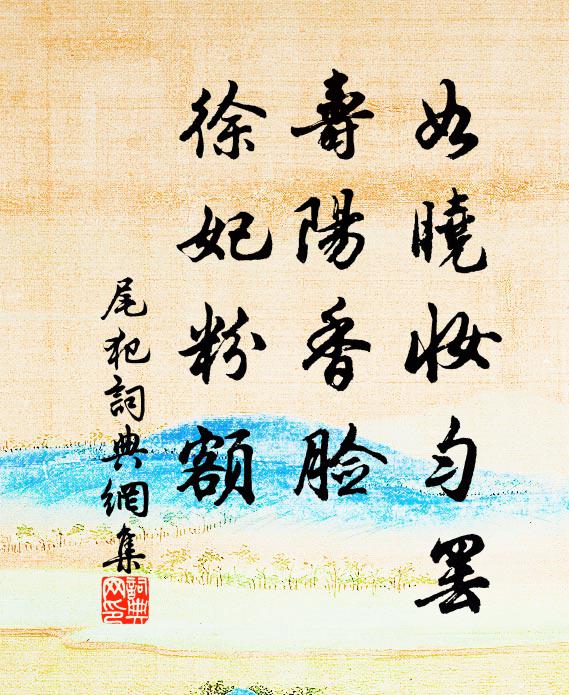 如曉妝勻罷
壽陽香臉
徐妃粉額
尾犯詞典網集
詞典网印